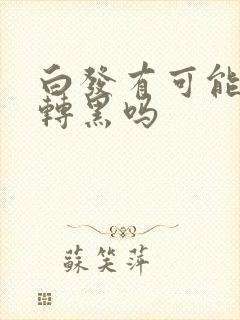 白發有可能
轉黑吗
蘇笑萍